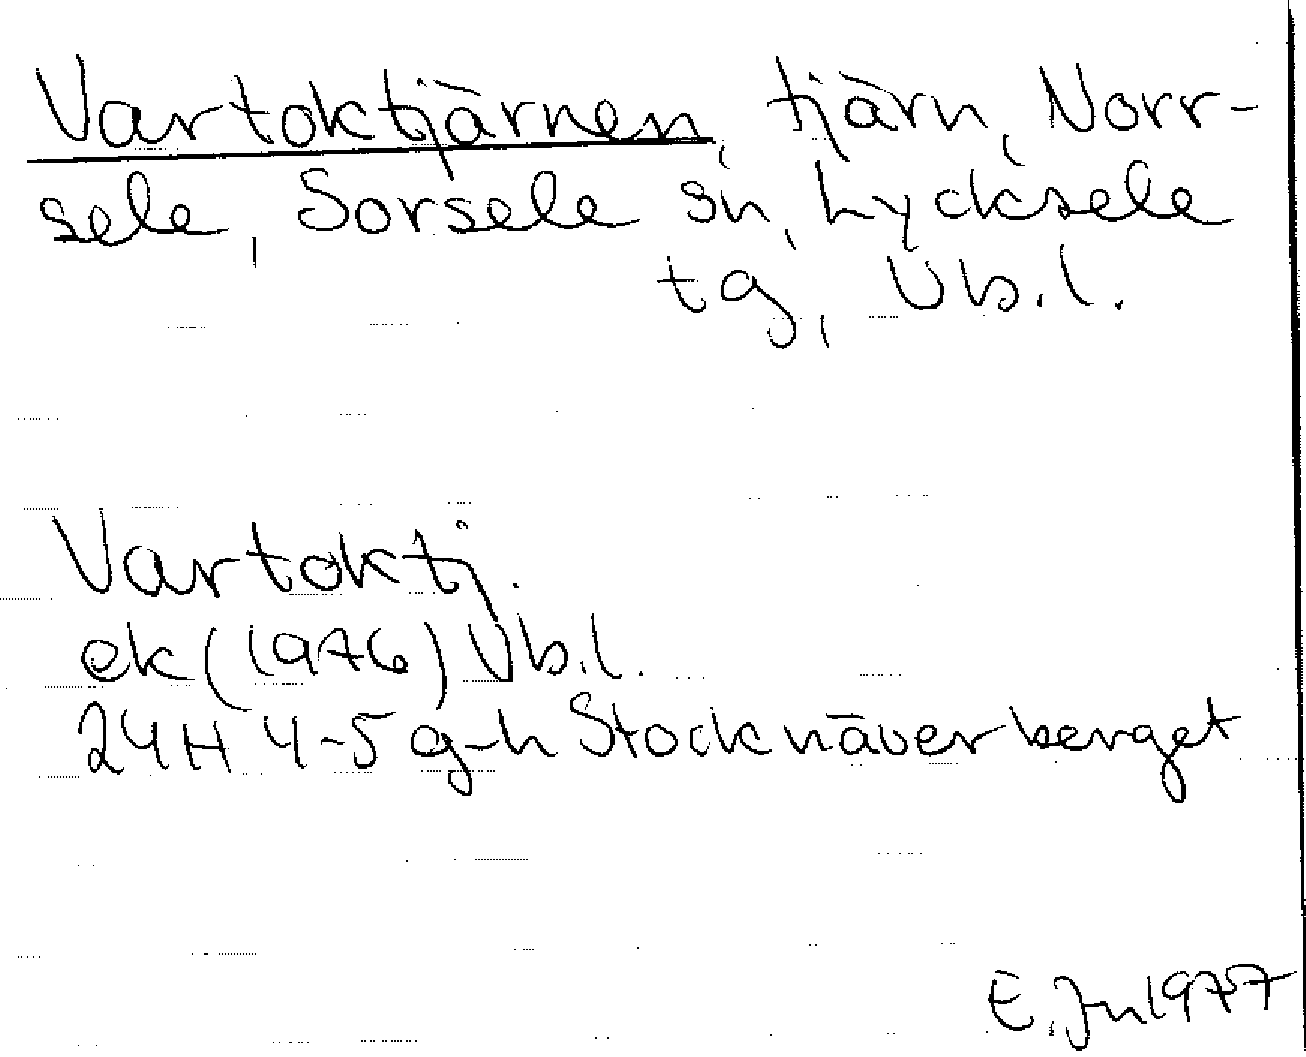 Vartoktjärnen, tjärn, Norr-
sele, Sorsele sn, Lycksele
tg, Vb.l.
Vartoktj.
ek (1976) Vb.l.
24H 4-5 g-h Stocknäverberget
E. Jn 1977